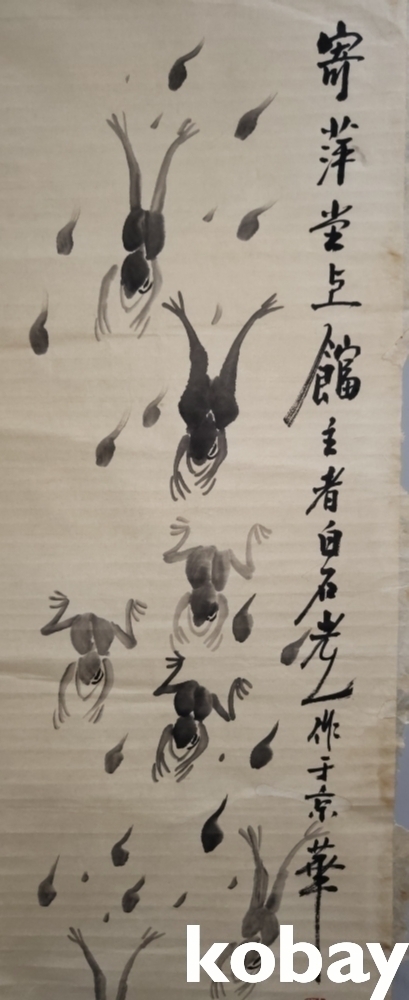 寄萍堂上館主者白石老人作于京華
kobay